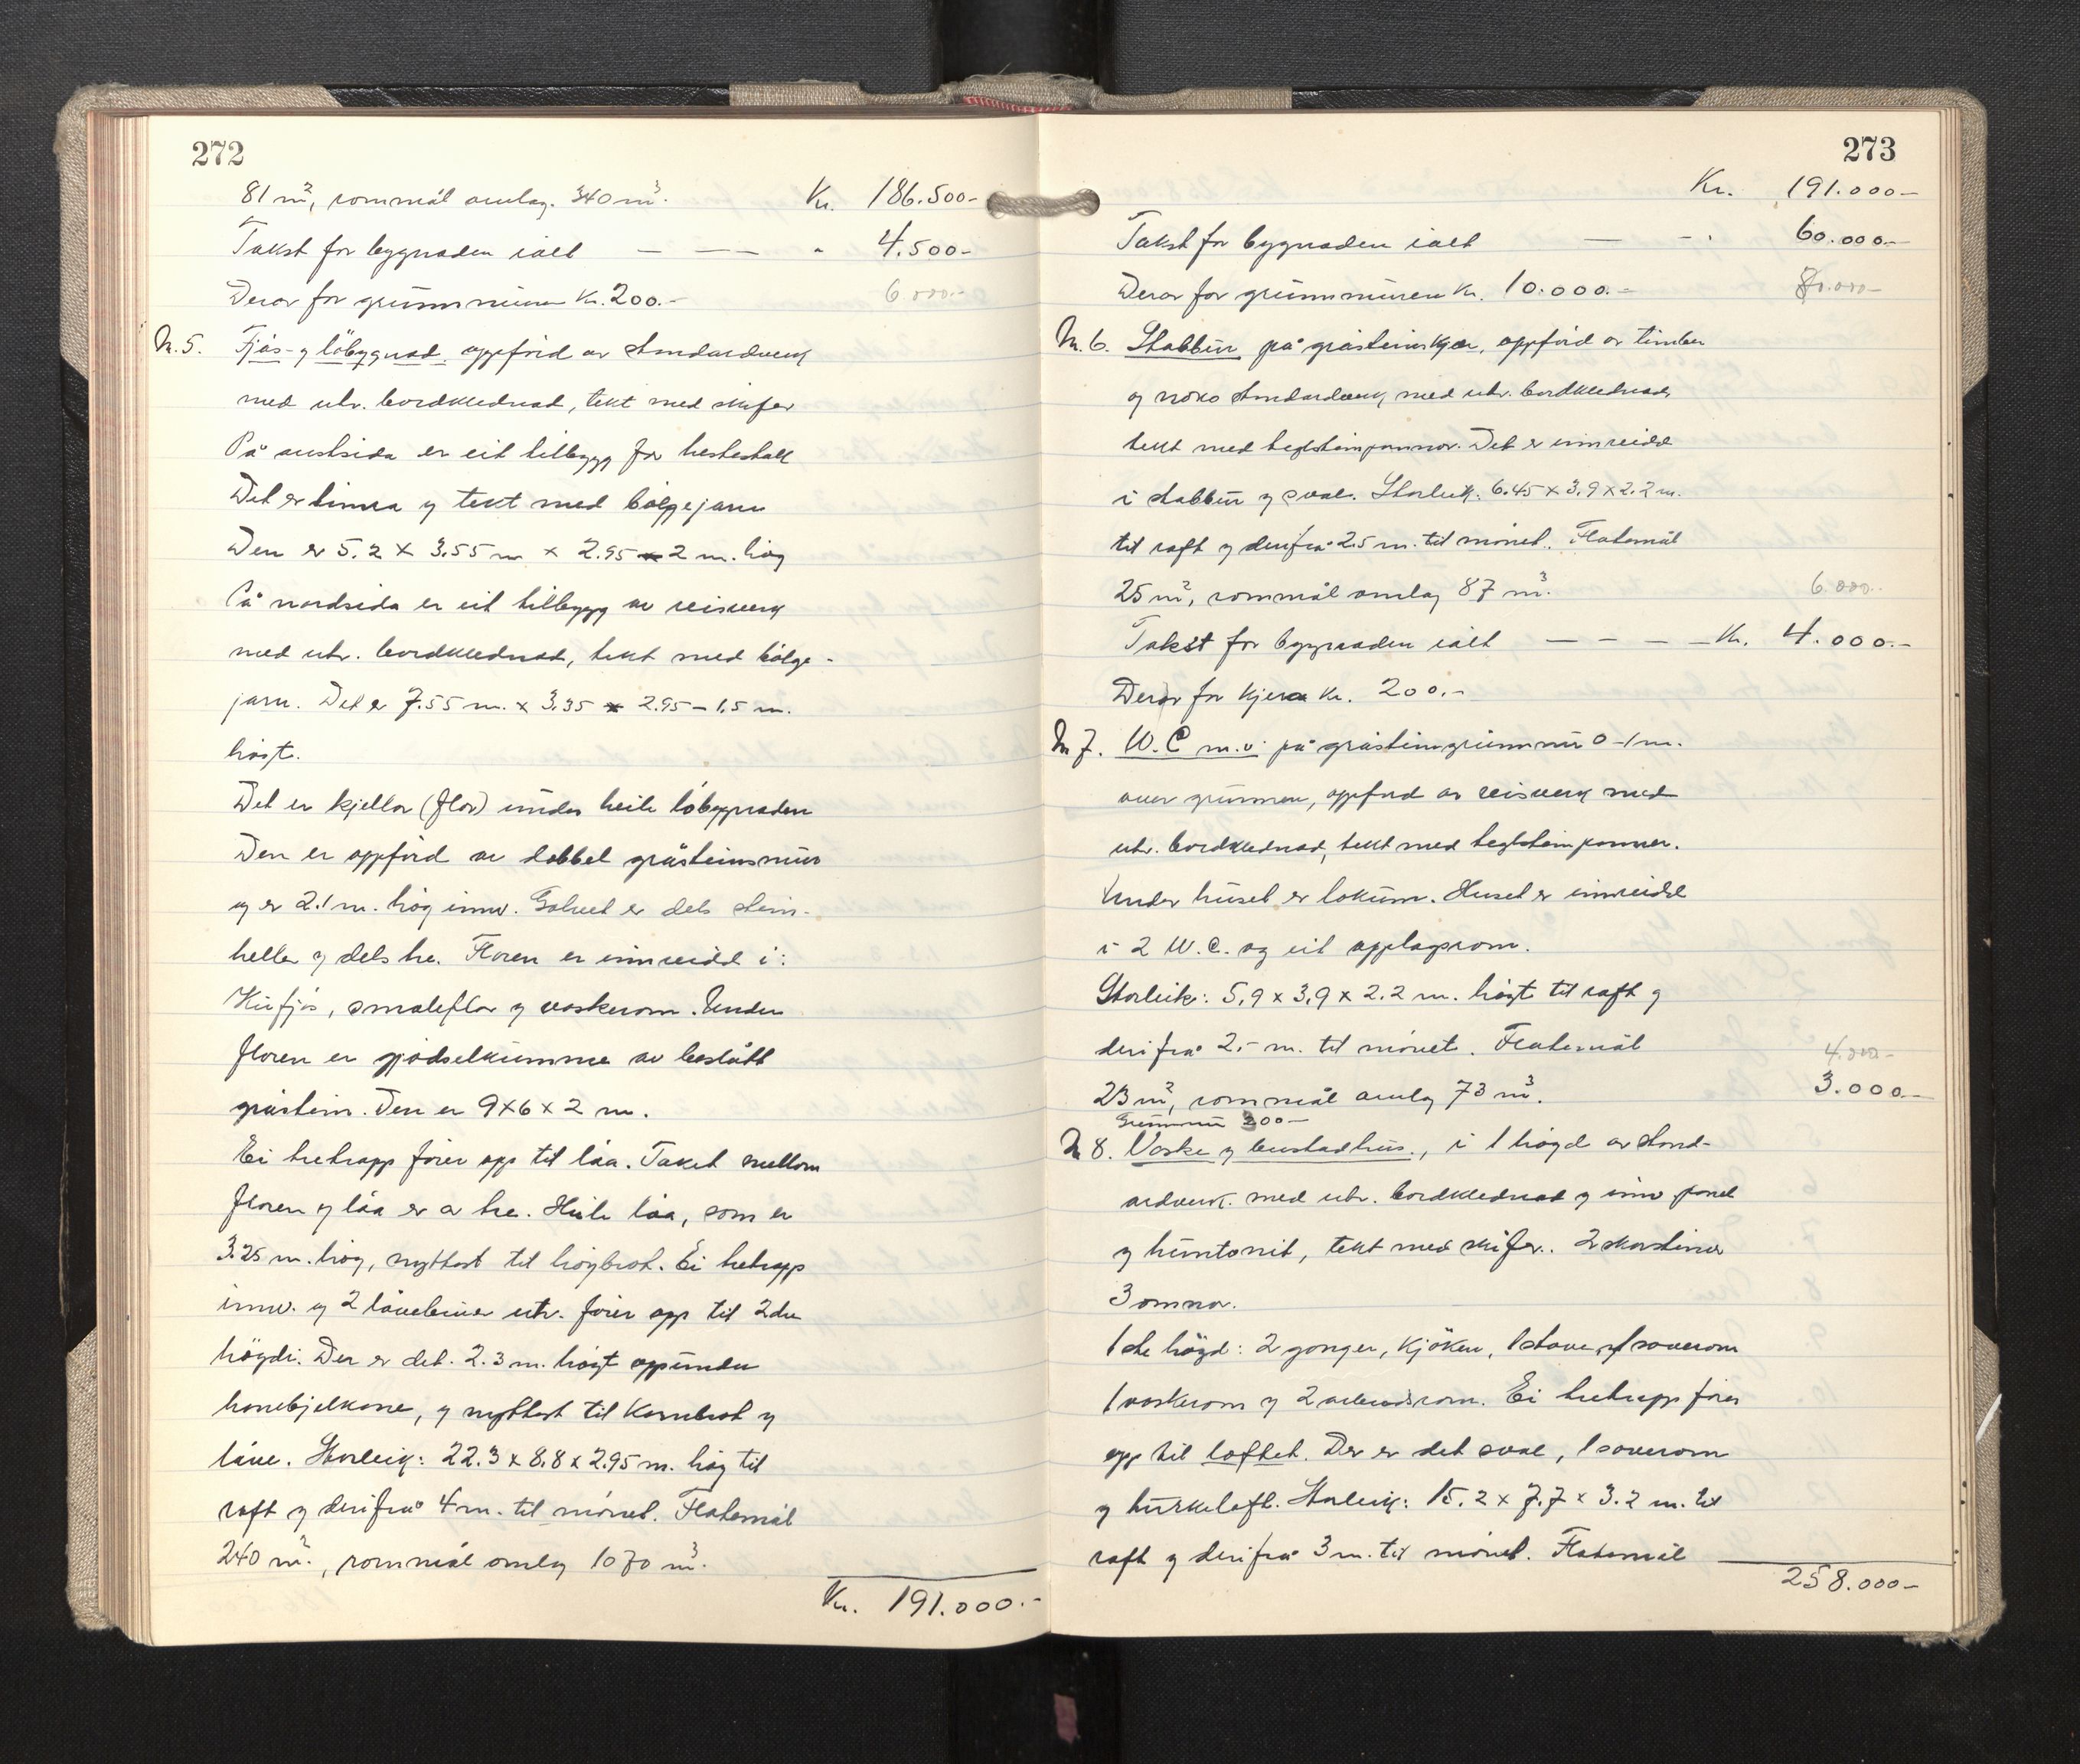 272
81 m², rommål omlag. 340 m³. Kr. 186.500-
Takst for bygnaden ialt — — — " 4.500-
Derav for grunnmuren Kr. 200.- 6.000.-
Nr. 5. Fjøs- og löbygnad, oppförd av standardverk
med utv. bordklednad, tekt med skifer
På austsida er eit tilbygg for hestestall
Det er timra og tekt med bølgejarn
Den er 5.2 x 3.55 m x 2.95 - 2 m. høg
På nordsida er eit tilbygg av reisverk
med utv. bordklednad, tekt med bølge-
jarn. Det er 7.55 m. x 3.35 x 2.95 - 1.5 m.
høgt.
Det er kjellar (flor) under heile löbygnaden
Den er oppförd av dobbel gråsteinsmur
og er 2.1 m. høg innv. Golvet er dels stein-
heller og dels tre. Floren er innreidd i:
Kufjös, smaleflor og vaskerom. Under
floren er gjödselkumme av beslått
gråstein. Den er 9x6x2 m.
Ei tretrapp förer opp til låa. Taket mellom
floren og låa er av tre. Heile låa, som er
3.25 m. høg, nyttast til höybrot. Ei tretrapp
innv. og 2 låvebruer utv. förer opp til 2dre
högdi. Der er det. 2.3 m. högt oppunder
hanebjelkane, og nyttast til Kornbrot og
låve. Storleik: 22.3 x 8.8 x 2.95 m. høg til
raft og derifrå 4 m. til mönet. Flatemål
240 m²., rommål omlag 1070 m³.
Kr. 191.000.-
273
Kr. 191.000-
Takst for bygnaden ialt — - . 60.000.-
Derav for grunnmuren Kr. 10.000.- 80.000-
Nr. 6. Stabbur på gråsteinskjer, oppförd av timber
og noko standardverk, med utv. bordklednad
tekt med teglsteinpannor. Det er innreidd
i stabbur og sval. Storleik: 6.45 x 3.9 x 2.2 m.
til raft og derifrå 2.5 m. til mönet. Flatemål
25 m², rommål omlag 87 m³. 6.000..
Takst for bygnaden ialt — — — — Kr. 4.000.-
Derav for kjera Kr. 200.-
Nr 7. W.C m.v. på gråsteingrunnmur 0-1 m.
over grunnen, oppförd av reisverk med
utv. bordklednad, tekt med teglsteinpanner.
Under huset er lokum. Huset er innreidd
i 2 W.C. og eit opplagsrom.
Storleik: 5,9 x 3,9 x 2.2 m. högt til raft og
derifrå 2,- m. til mönet. Flatemål 4.000-
23 m², rommål omlag 73 m³. 3.000-
Grunnmur 300-
Nr 8. Vaske og bustadhus., i 1 högd av stand-
ardverk. med utv. bordklednad og innv panel
og huntonit, tekt med skifer.. 2 skorsteiner
3 omnar.
1ste högd: 2 gonger, kjöken, 1 stove, 1 soverom
1 vaskerom og 2 arbeidsrom. Ei tretrapp förer
opp til loftet. Der er det sval, 1 soverom
og turkeloft. Storleik: 15.2 x 7.7 x 3.2 m. til
raft og derifrå 3 m. til mönet. Flatemål
258.000-